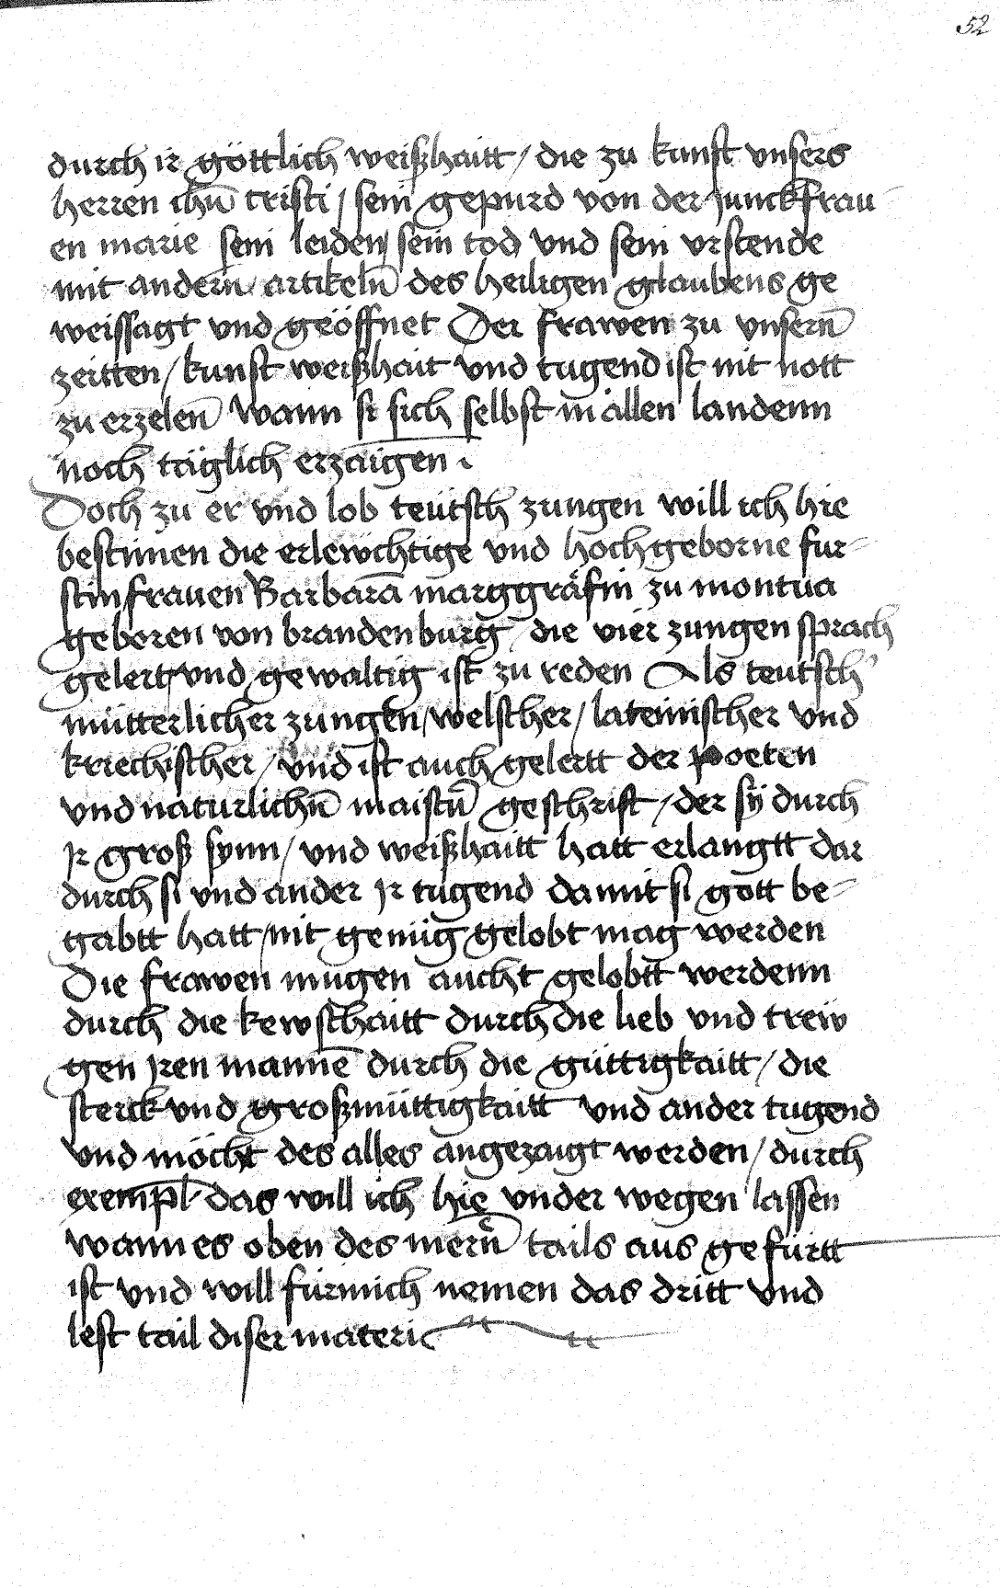 52
durch ir göttlich weißhaitt / die zu kunft vnsers
herren ihū cristi / sein gepurd von der Junckfrau-
en marie sein leiden / sein tod vnd sein vrstende
mit andern̄ / artikeln̄ des heiligen glaubens ge
weissagt vnd geöffnet Der frawen zu vnsern̄
zeitten / kunst weißhait vnd tugend ist nit nott
zu erzelen̄ wann si sich selbst in allen landenn
noch täglich erzaigen .
Doch zu er vnd lob teütsch zungen will ich hie
bestim̄en die erlewchtige vnd hochgeborne fur-
stin frauen Barbarā marggräfin zu montua
geboren von brandenburg / die vier zungen sprach
gelert vnd gewaltig ist zu reden Als teutsch
mütterlicher zungen / welscher / lateinischer vnd
kriechischer / vnd ist auch gelertt der Poeten
vnd naturlichn̄ maistn̄ geschrift / der sÿ durch
Jr groß synn / vnd weißhaitt hatt erlangtt dar
durch si vnd ander Jr tugend damit si gott be-
gabtt hatt / nit genüg gelobt mag werden
Die frawen mugen aucht gelobtt werdenn
durch die kewschaitt durch die lieb vnd trew
gen Jren mannē durch die güttigkaitt / die
sterck vnd großmüttigkaitt vnd ander tugend
vnd möcht des alles angezaigt werden / durch
exempl das will ich hie vnder wegen lassen
wann es oben des mern̄ tails aus gefürtt
ist vnd will für mich nemen das dritt vnd
lest tail diser materi